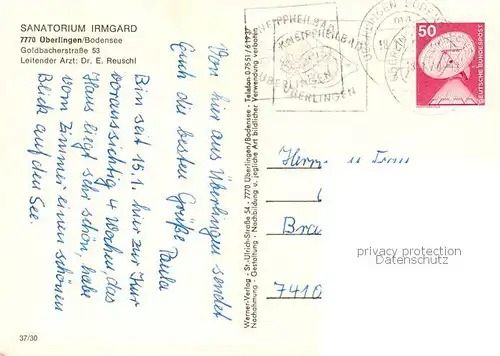 SANATORIUM IRMGARD
7770 Überlingen/Bodensee
Goldbacherstraße 53
Leitender Arzt: Dr. E. Reuschl
Von hier aus Überlingen sendet
Euch die besten Grüße Paula
Bin seit 15.1. hier zur Kur
voraussichtig 4 Wochen, das
Haus liegt sehr schön, habe
vom Zimmer einen schönen
Blick auf den See.
37/30
Werner-Verlag - St.-Ulrich-Straße 54 - 7770 Überlingen/Bodensee - Tel. 07551/61937
Nachahmung - Gestaltung - Nachbildung u. jegliche Art bildlicher Verwendung verboten
KNEIPPHEILBAD
ÜBERLINGEN
50
DEUTSCHE BUNDESPOST
Herrn u. Frau
Bra
7410
privacy protection
VDMEDIEN